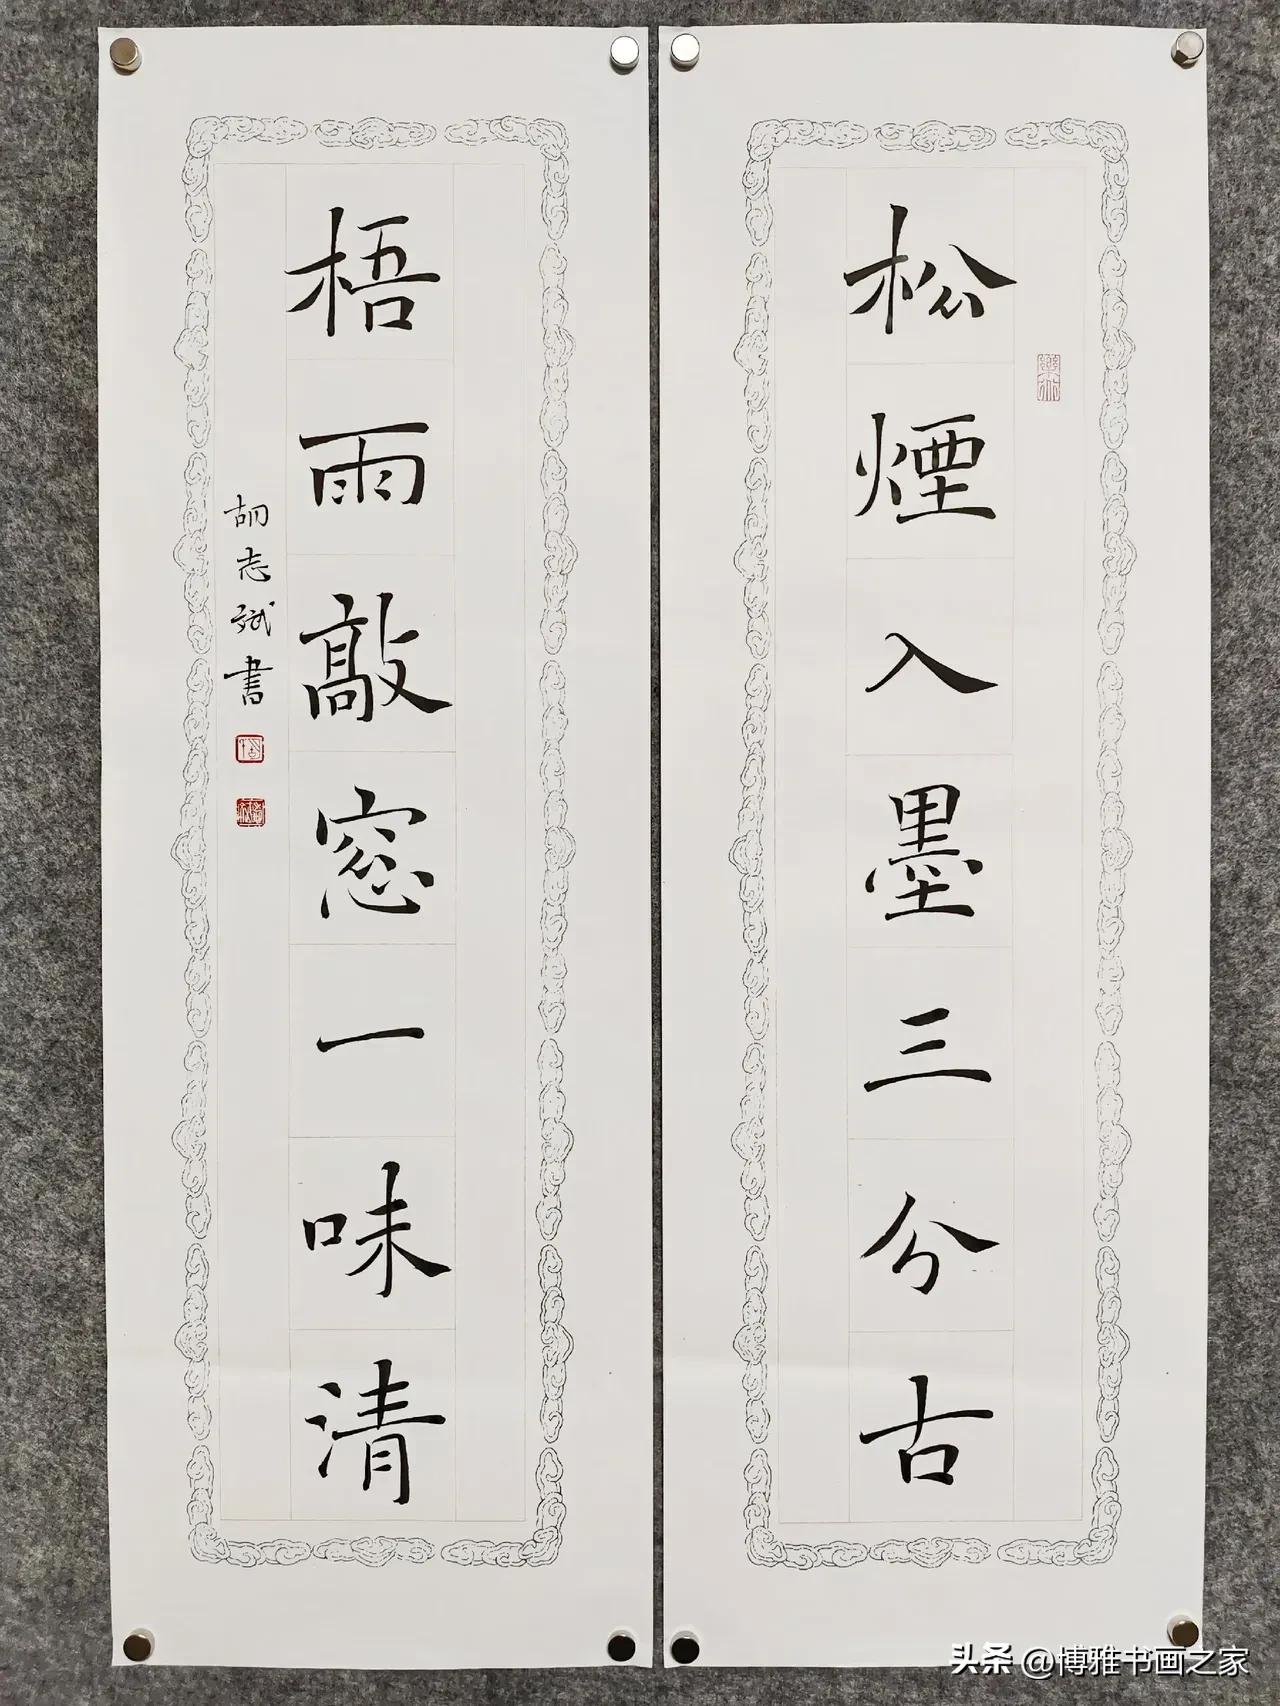 松煙入墨三分古
梧雨敲窓一味清
胡志斌書
头条 @博雅书画之家